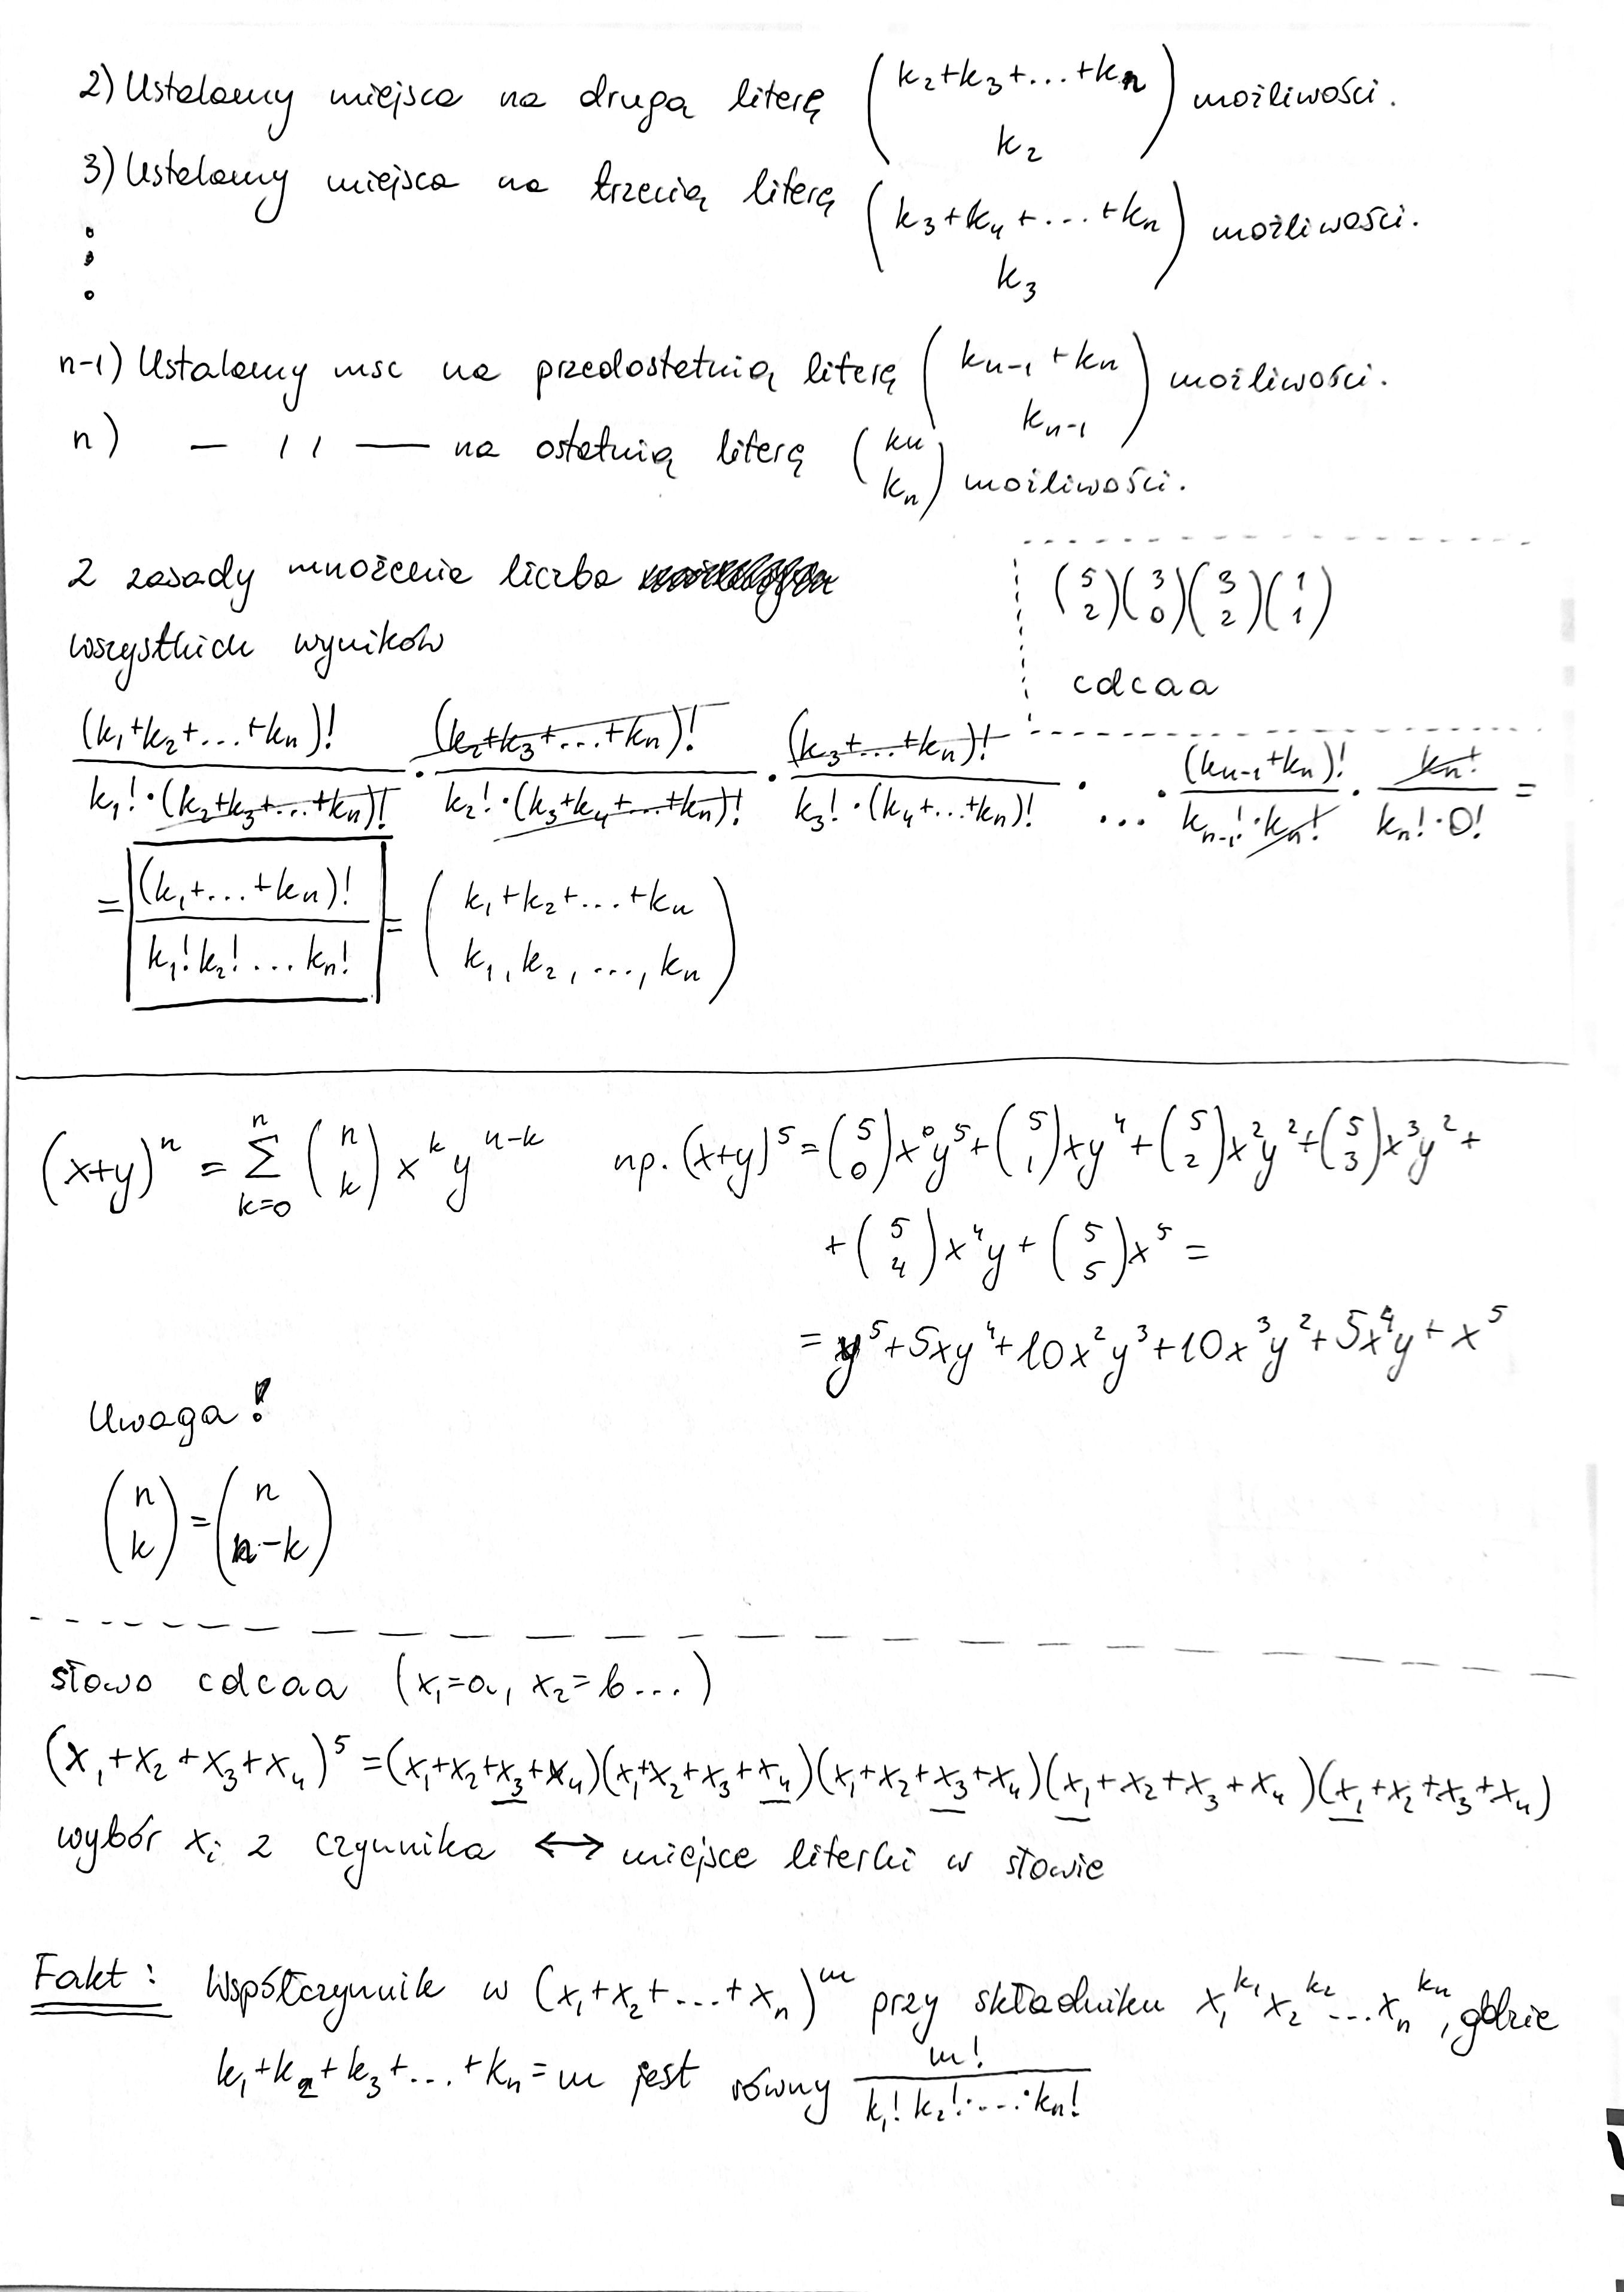 2) Ustalamy miejsca na drugą literę $\binom{k_2+k_3+...+k_n}{k_2}$ możliwości.
3) Ustalamy miejsca na trzecią literę $\binom{k_3+k_4+...+k_n}{k_3}$ możliwości.
⋮
n-1) Ustalamy msc na przedostatnią literę $\binom{k_{n-1}+k_n}{k_{n-1}}$ możliwości.
n) — 11 — na ostatnią literę $\binom{k_n}{k_n}$ możliwości.
z zasady mnożenia liczba
wszystkich wyników
$\binom{5}{2}\binom{3}{0}\binom{3}{2}\binom{1}{1}$
cdcaa
$\frac{(k_1+k_2+...+k_n)!}{k_1!\cdot(k_2+k_3+...+k_n)!}\cdot\frac{(k_2+k_3+...+k_n)!}{k_2!\cdot(k_3+k_4+...+k_n)!}\cdot\frac{(k_3+...+k_n)!}{k_3!\cdot(k_4+...+k_n)!}\cdot ... \cdot\frac{(k_{n-1}+k_n)!}{k_{n-1}!\cdot k_n!}\cdot\frac{k_n!}{k_n!\cdot 0!}=$
$=\frac{(k_1+...+k_n)!}{k_1!k_2!...k_n!}=\binom{k_1+k_2+...+k_n}{k_1,k_2,...,k_n}$
$(x+y)^n=\sum_{k=0}^{n}\binom{n}{k}x^k y^{n-k}$ np. $(x+y)^5=\binom{5}{0}x^0y^5+\binom{5}{1}xy^4+\binom{5}{2}x^2y^2+\binom{5}{3}x^3y^2+$
$+\binom{5}{4}x^4y+\binom{5}{5}x^5=$
$=y^5+5xy^4+10x^2y^3+10x^3y^2+5x^4y+x^5$
Uwaga!
$\binom{n}{k}=\binom{n}{n-k}$
słowo cdcaa $(x_1=a, x_2=b...)$
$(x_1+x_2+x_3+x_4)^5=(x_1+x_2+\underline{x_3}+x_4)(x_1+x_2+x_3+\underline{x_4})(x_1+x_2+\underline{x_3}+x_4)(\underline{x_1}+x_2+x_3+x_4)(\underline{x_1}+x_2+x_3+x_4)$
wybór $x_i$ z czynnika ↔ miejsce literki w słowie
Fakt: Współczynnik w $(x_1+x_2+...+x_n)^m$ przy składniku $x_1^{k_1}x_2^{k_2}...x_n^{k_n}$, gdzie
$k_1+k_2+k_3+...+k_n=m$ jest równy $\frac{m!}{k_1!k_2!\cdot...\cdot k_n!}$